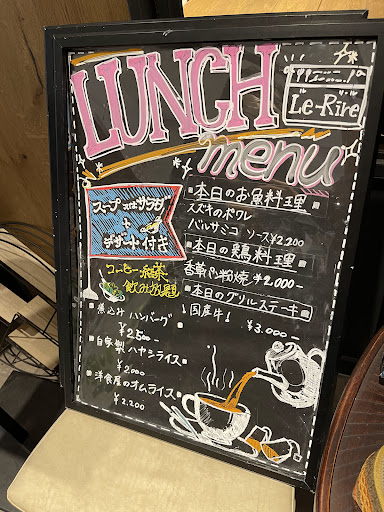 LUNCH
menu
Le-Rire
スープ又はサラダ
+
デザート付き
コーヒー・紅茶
飲み放題
■煮込みハンバーグ
¥2500-
■自家製ハヤシライス
¥2,000
■洋食屋のオムライス
¥2.200
■本日のお魚料理
スズキのポワレ
バルサミコソース ¥2.200
■本日の鶏料理
香草パン粉焼 ¥2.000-
■本日のグリルステーキ
国産牛!
¥3.000-